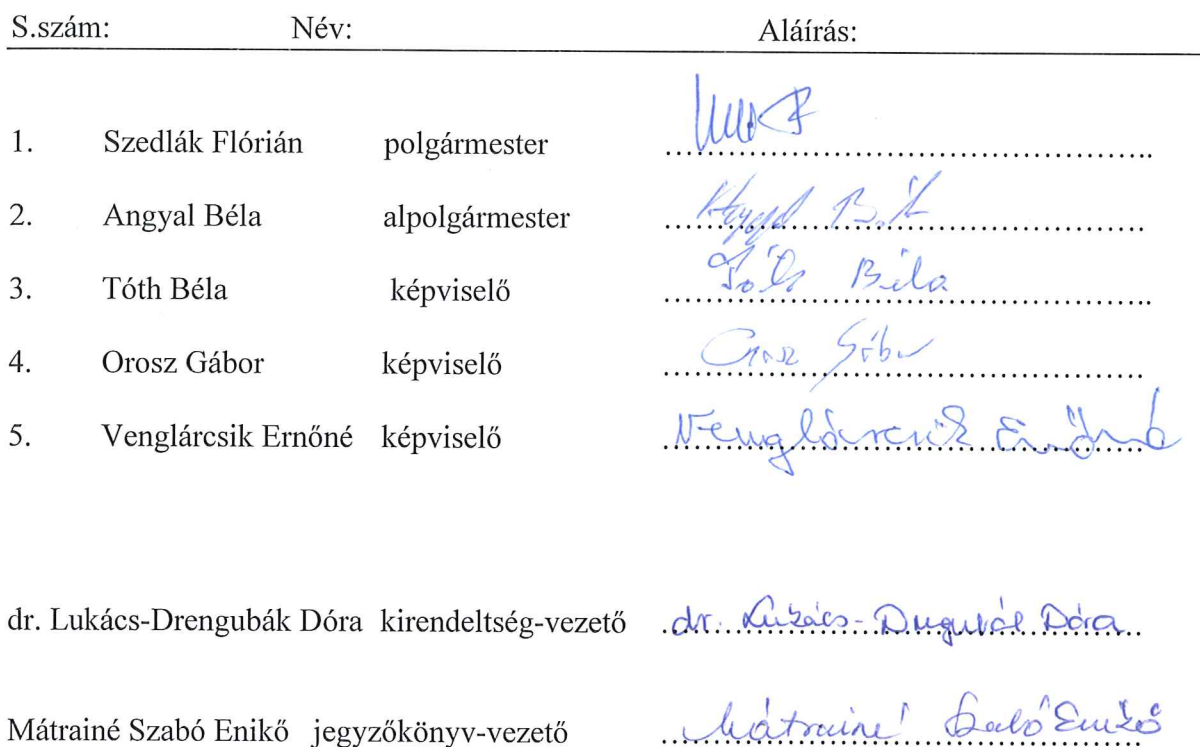 S.szám: Név: Aláírás:
1. Szedlák Flórián polgármester ........................................
2. Angyal Béla alpolgármester ........................................
3. Tóth Béla képviselő Tóth Béla
4. Orosz Gábor képviselő Orosz Gábor
5. Venglárcsik Ernőné képviselő Venglárcsik Ernőné
dr. Lukács-Drengubák Dóra kirendeltség-vezető dr. Lukács-Drengubák Dóra
Mátrainé Szabó Enikő jegyzőkönyv-vezető Mátrainé Szabó Enikő